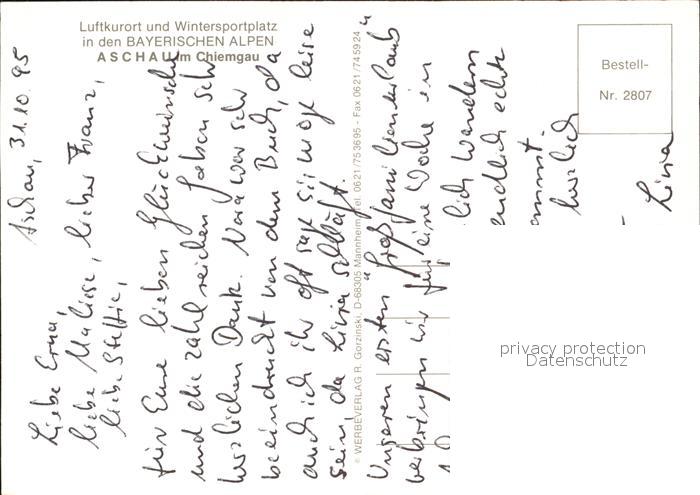 Luftkurort und Wintersportplatz
in den BAYERISCHEN ALPEN
ASCHAU im Chiemgau
Aschau, 31.10.95
Liebe Erna,
liebe Marliese, lieber Franz,
liebe Steffie,
für Eure lieben Glückwünsche
und die zahlreichen Gaben sehr
herzlichen Dank. Nora war sehr
beeindruckt von dem Buch, da
auch ich ihr oft sage sie möge leise
sein, da Livia schläft.
Unseren ersten "Großfamilienurlaub"
verbringen wir für eine Woche in
lich wandern
endlich echte
ommt.
herzlich
Livia
© WERBEVERLAG R. Gorzinski, D-68305 Mannheim, Tel. 0621/753695 - Fax 0621/745924
Bestell-
Nr. 2807
privacy protection
Datenschutz